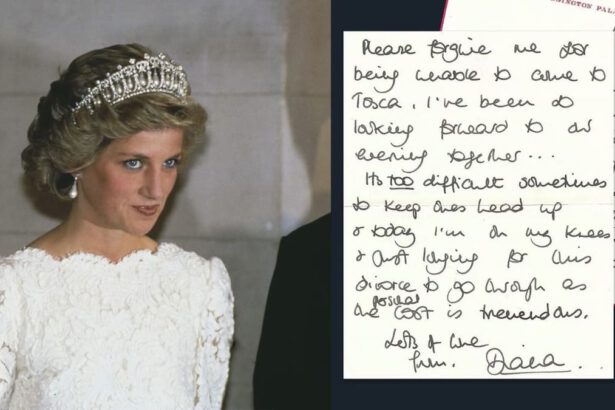 INGTON PAL
Please forgive me for
being unable to come to
Tosca, I've been so
looking forward to our
evening together...
Its too difficult sometimes
to keep ones head up
& today I'm on my knees
& just longing for this
divorce to go through as
the possible cost is tremendous.
Lots of love
from, Diana.